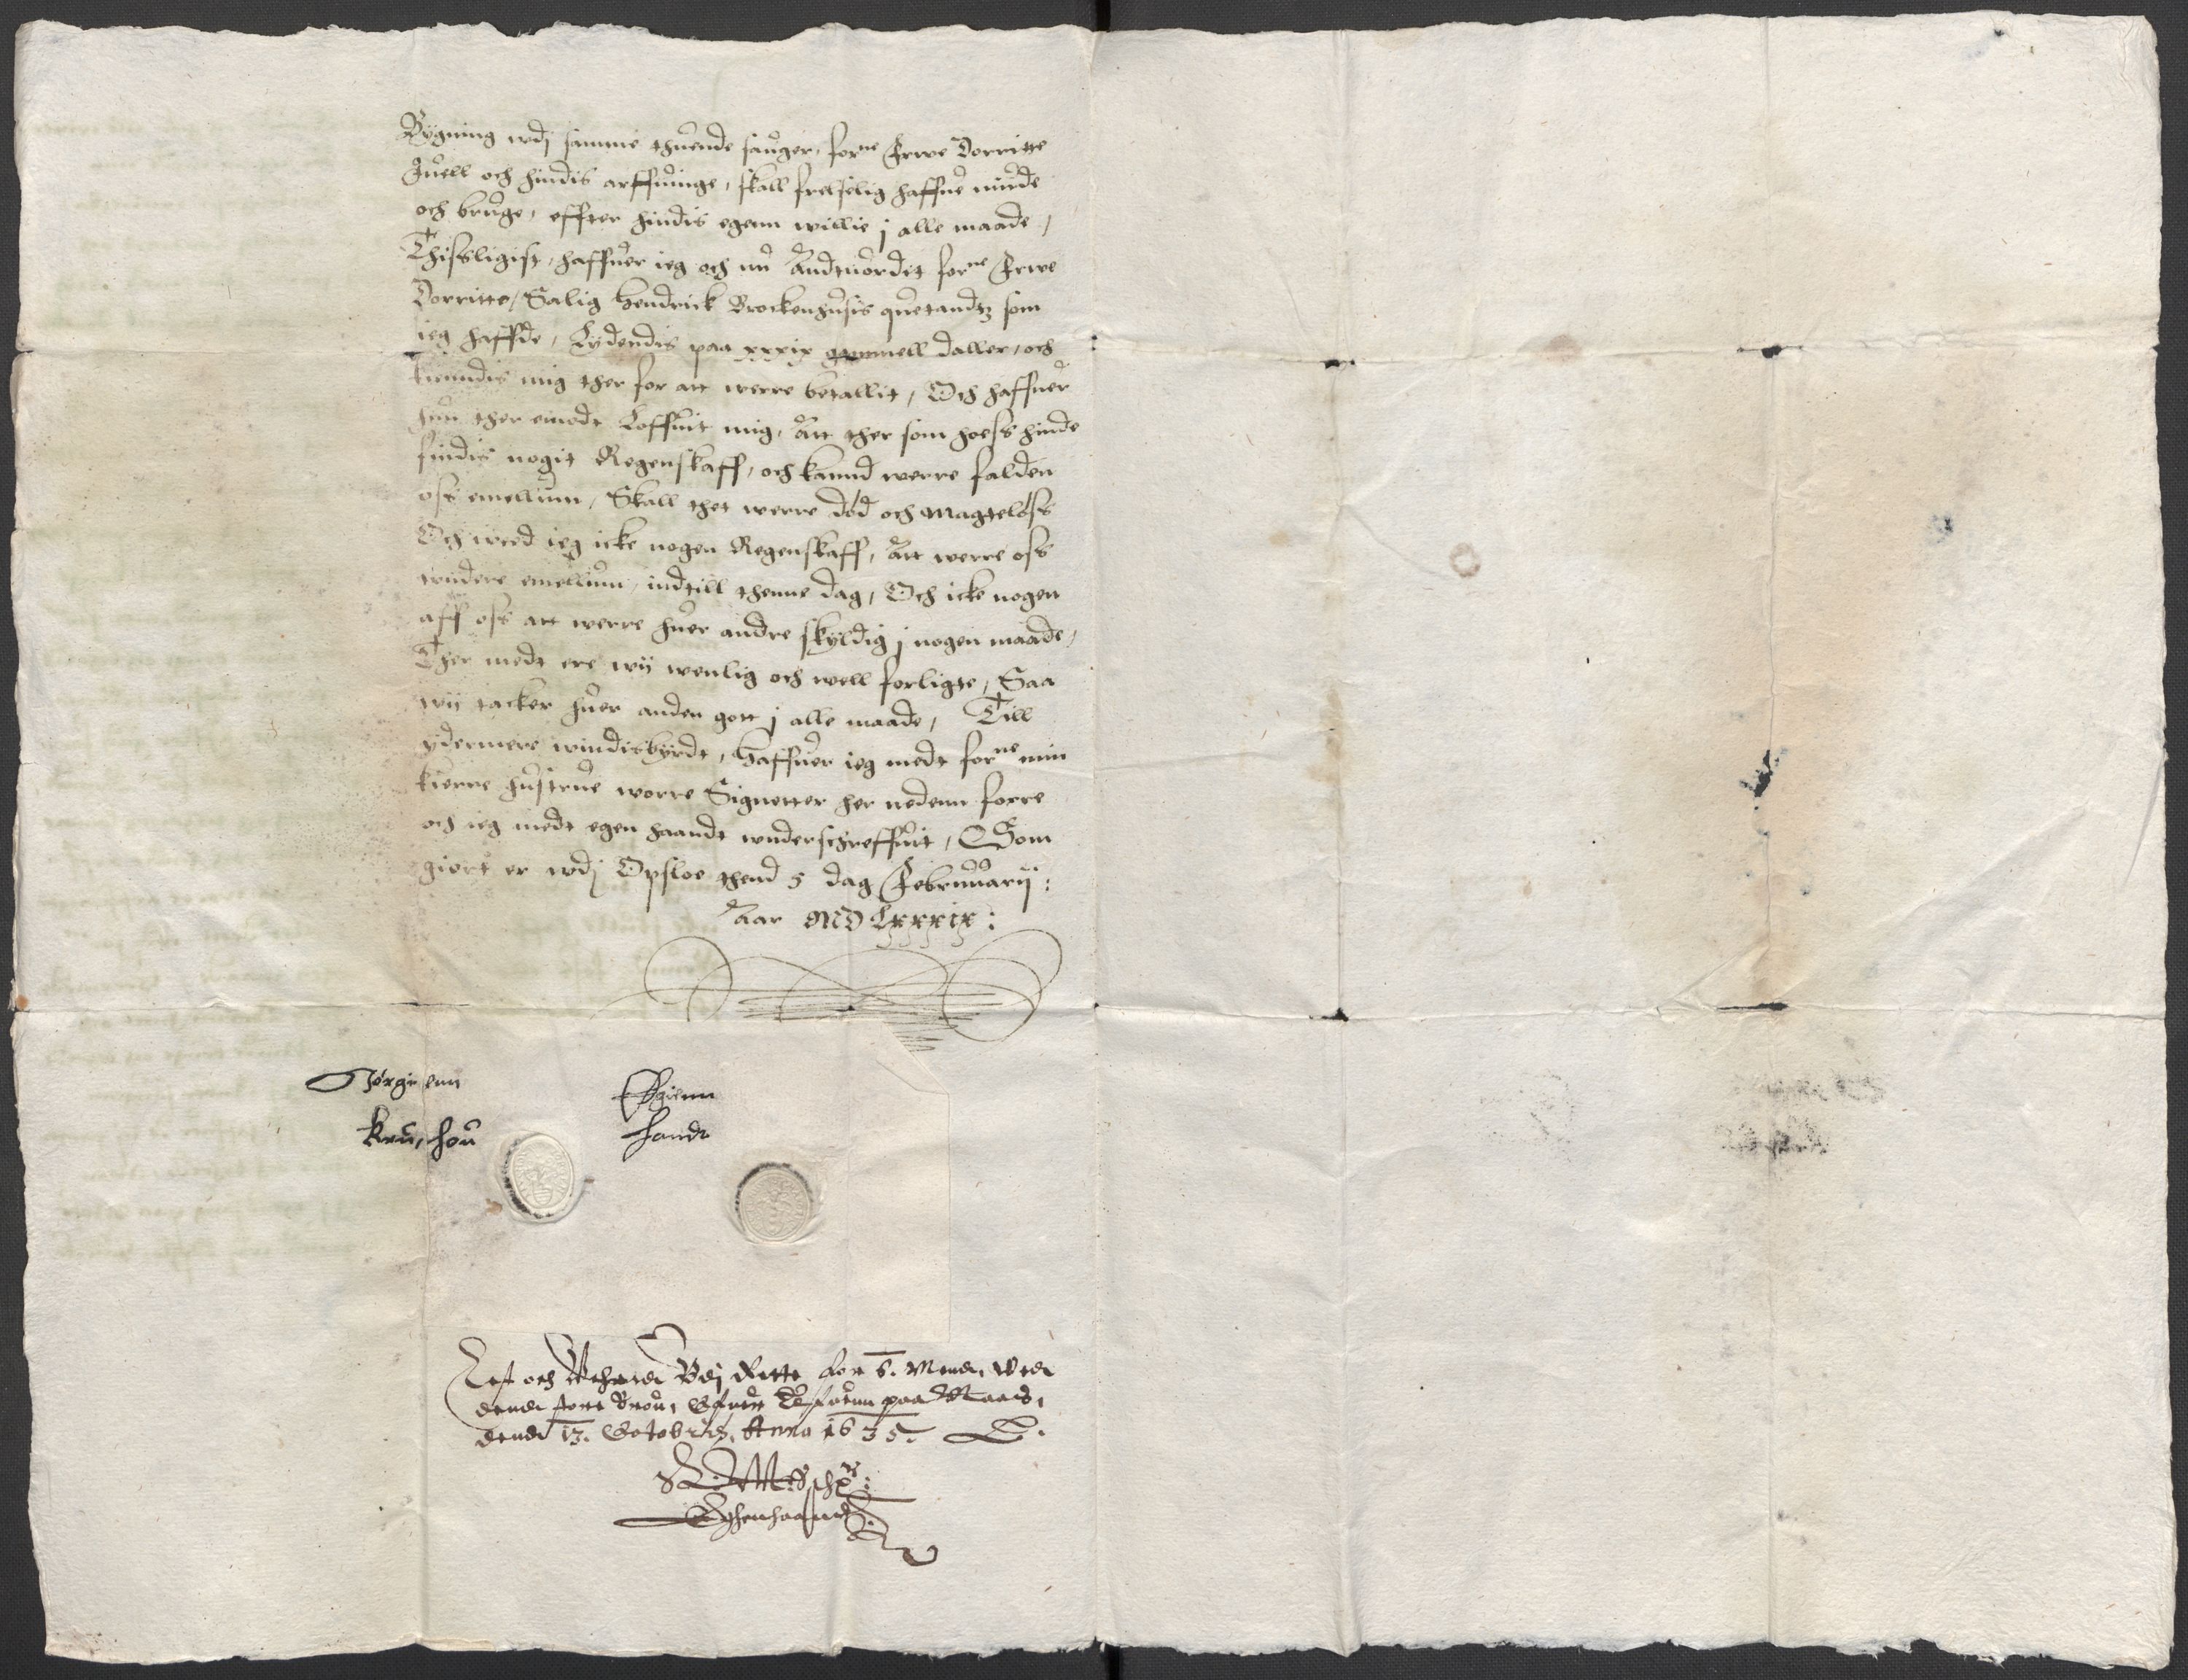 Bygning wdj samme thuende sauger, forne Frwe Dorritte
Juell och hindis arffuinge, skall frelselig haffue nude
och bruge, effter hindis egenn willie j alle maade,
Thisligist, haffuer ieg och nu Andtuordet forne Frwe
Dorritte, Salig Hendrick Brockenhusis quetandtz som
ieg haffde, Lydendis paa xxxix gammell daller, och
kiendis mig ther for att werre betallit, Och haffuer
hun ther emodt Loffuit mig, Att ther som hoess hinde
findis nogit Regenskaff, och kannd werre falden
oss emellum, Skall thet werre død och magteløss
Och weed ieg icke nogen Regenskaff, Att werre oss
widere emellum, indtill thenne dag, Och icke nogen
aff oss att werre huer andre skyldig j nogen maade,
Ther medt ere wij wenlig och well forligte, Saa
wij tacker huer anden gott j alle maade, Till
ydermere windisbyrdt, Haffuer ieg medt forne min
kierre hustrue worre Signetter her nedenn forre
och ieg medt egen haandt wnderschreffuit, Som
giort er wdj Opsloe thend 5 dag Februuarij:
Aar MD Lxxxix:
Jørgenn Egienn
handt
Lest och Paa Rette for 6. Mend,
paa
dend 13. Octobris, Anno 1635.
Eghenhaand